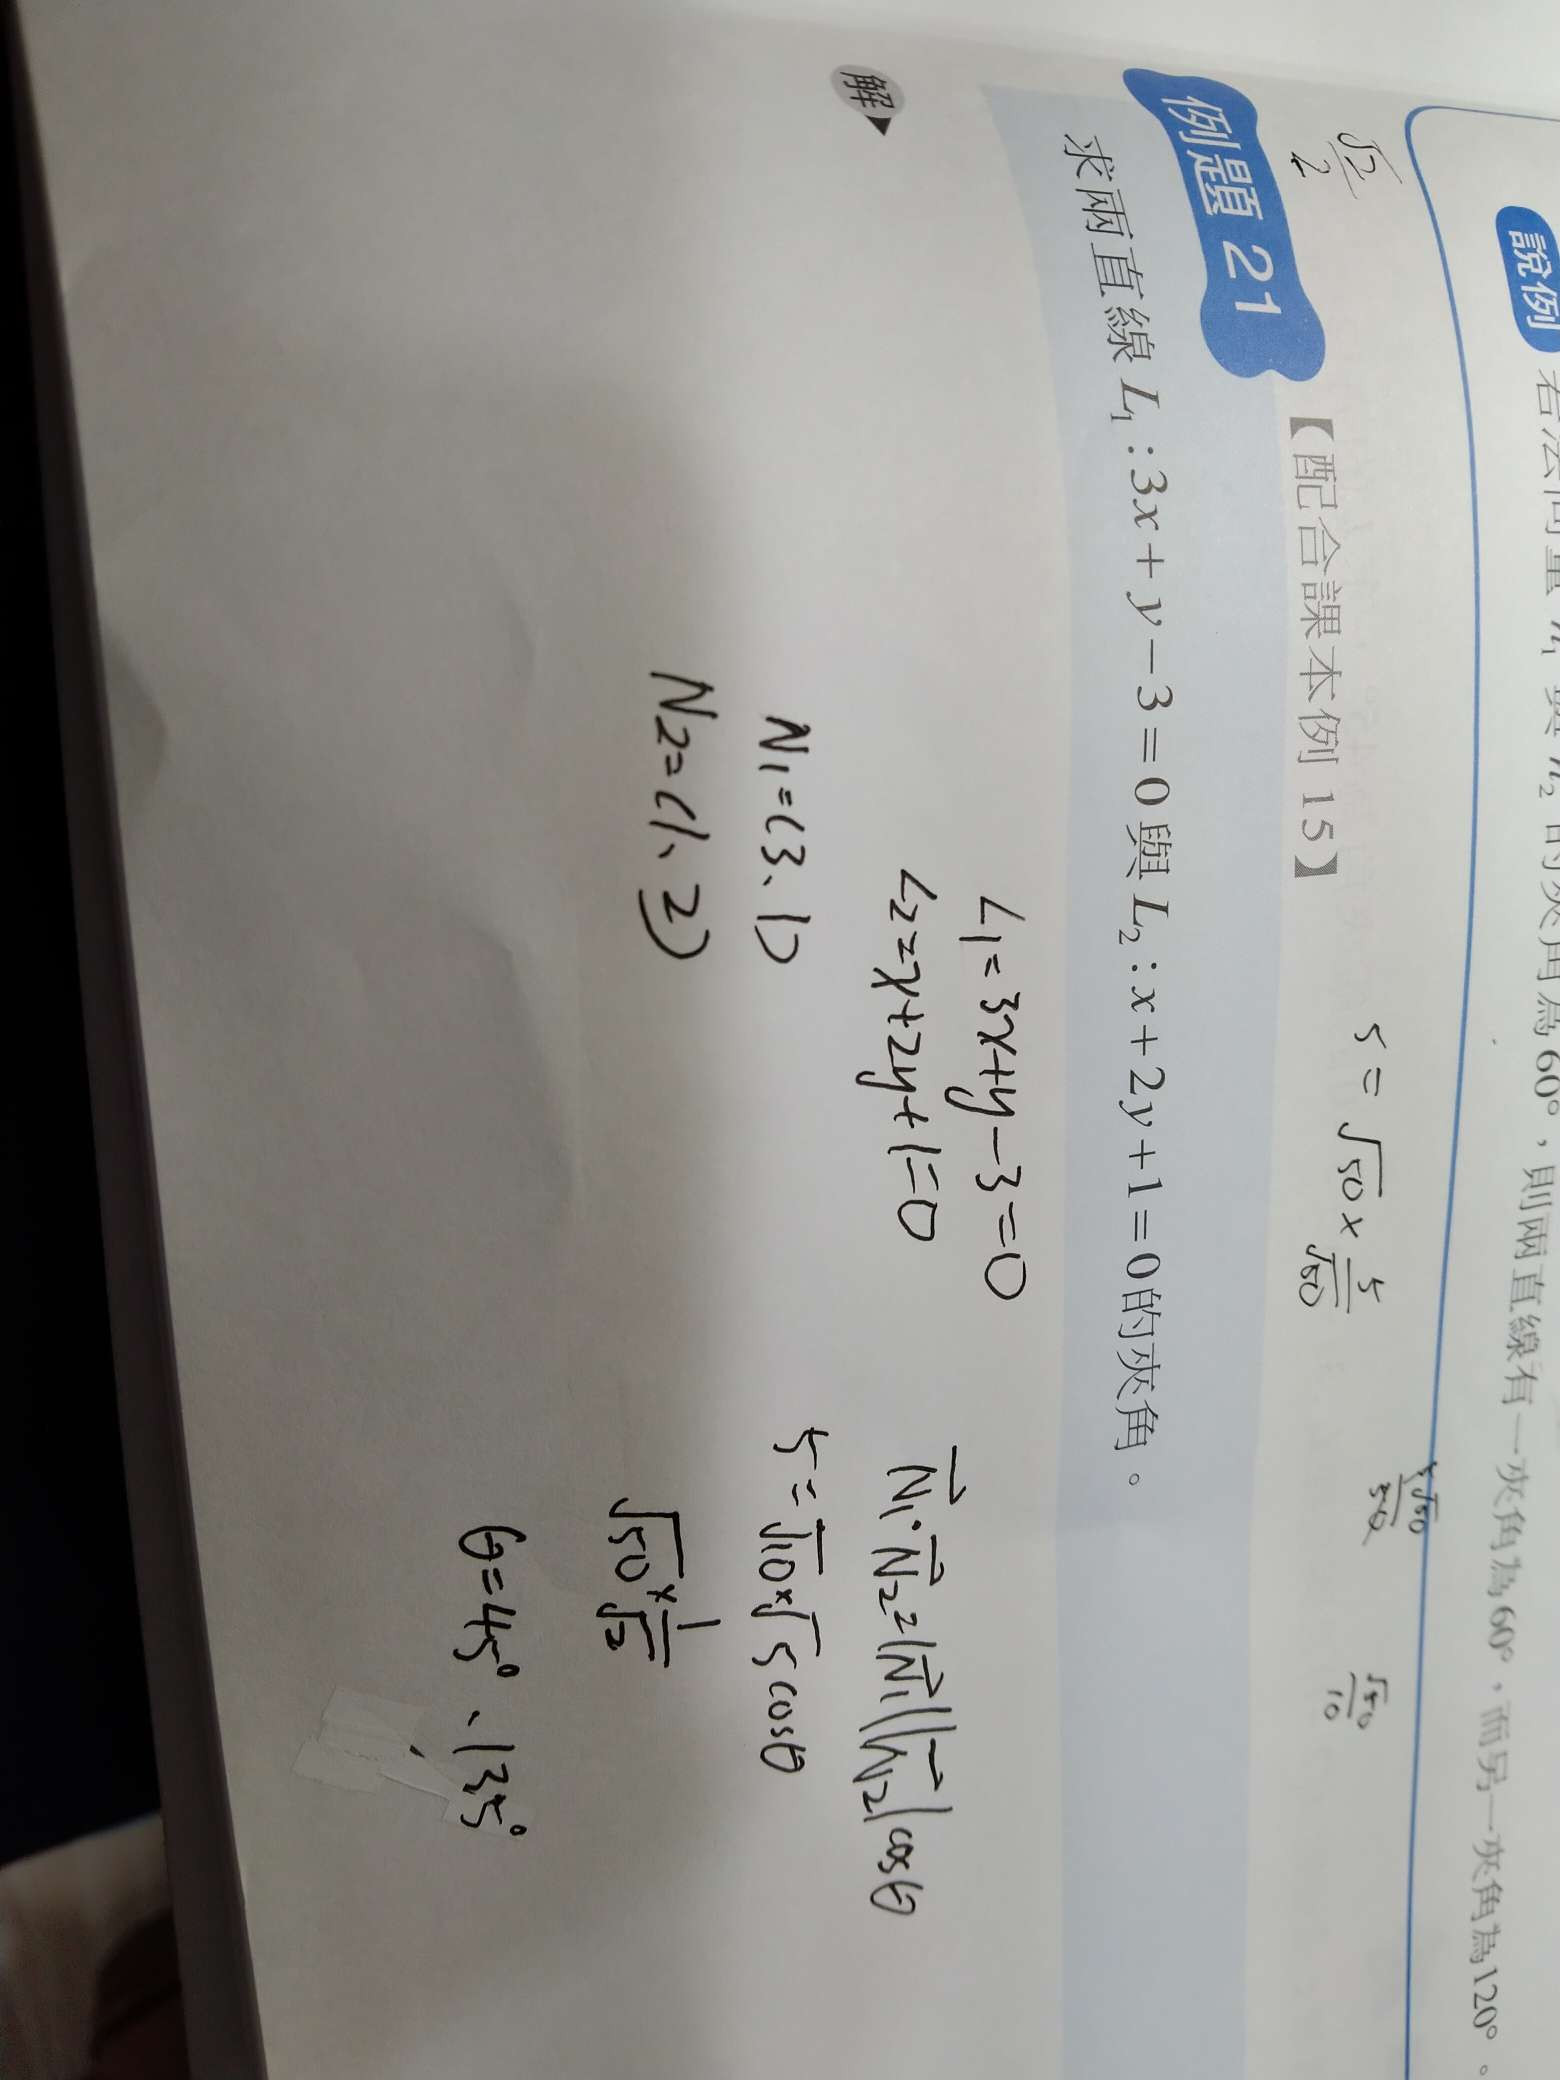 說例 若法向量 n₁ 與 n₂ 的夾角為60°，則兩直線有一夾角為60°，而另一夾角為120°。
√2/2
5=√50×5/√50
5√50/50
√50/10
例題 21 【配合課本例15】
求兩直線 L₁:3x+y−3=0與L₂:x+2y+1=0的夾角。
解
L₁=3x+y−3=0
L₂=x+2y+1=0
N₁=(3、1)
N₂=(1、2)
N₁·N₂=|N₁||N₂|cosθ
5=√10×√5cosθ
√50×1/√2
θ=45°、135°